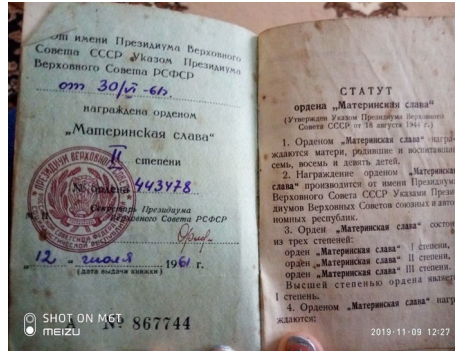 От имени Президиума Верховного
Совета СССР Указом Президиума
Верховного Совета РСФСР
от 30/VI - 61г.
награждена орденом
„Материнская слава“
II степени
№ ордена 443478.
Секретарь Президиума
Верховного Совета РСФСР
М. П.
„12“ июля 1961 г.
(дата выдачи книжки)
А № 867744
СТАТУТ
ордена „Материнская слава“
(Утвержден Указом Президиума Верховного
Совета СССР от 18 августа 1944 г.)
1. Орденом „Материнская слава“ награ-
ждаются матери, родившие и воспитавшие
семь, восемь и девять детей.
2. Награждение орденом „Материнская
слава“ производится от имени Президиума
Верховного Совета СССР Указами Прези-
диумов Верховных Советов союзных и авто-
номных республик.
3. Орден „Материнская слава“ состоит
из трех степеней:
орден „Материнская слава“ I степени,
орден „Материнская слава“ II степени,
орден „Материнская слава“ III степени.
Высшей степенью ордена является
I степень.
4. Орденом „Материнская слава“ награ-
ждаются:
SHOT ON M6T
MEIZU
2019-11-09 12:27